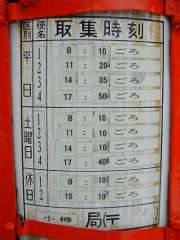 種別 便名 取集時刻
平日
1 8:10 ごろ
2 11:20 ごろ
3 14:05 ごろ
4 17:50 ごろ
土曜日
1 8:10 ごろ
2 11:10 ごろ
3 14:10 ごろ
4 17:40 ごろ
休日
1 9:10 ごろ
2 15:10 ごろ
小樽 局